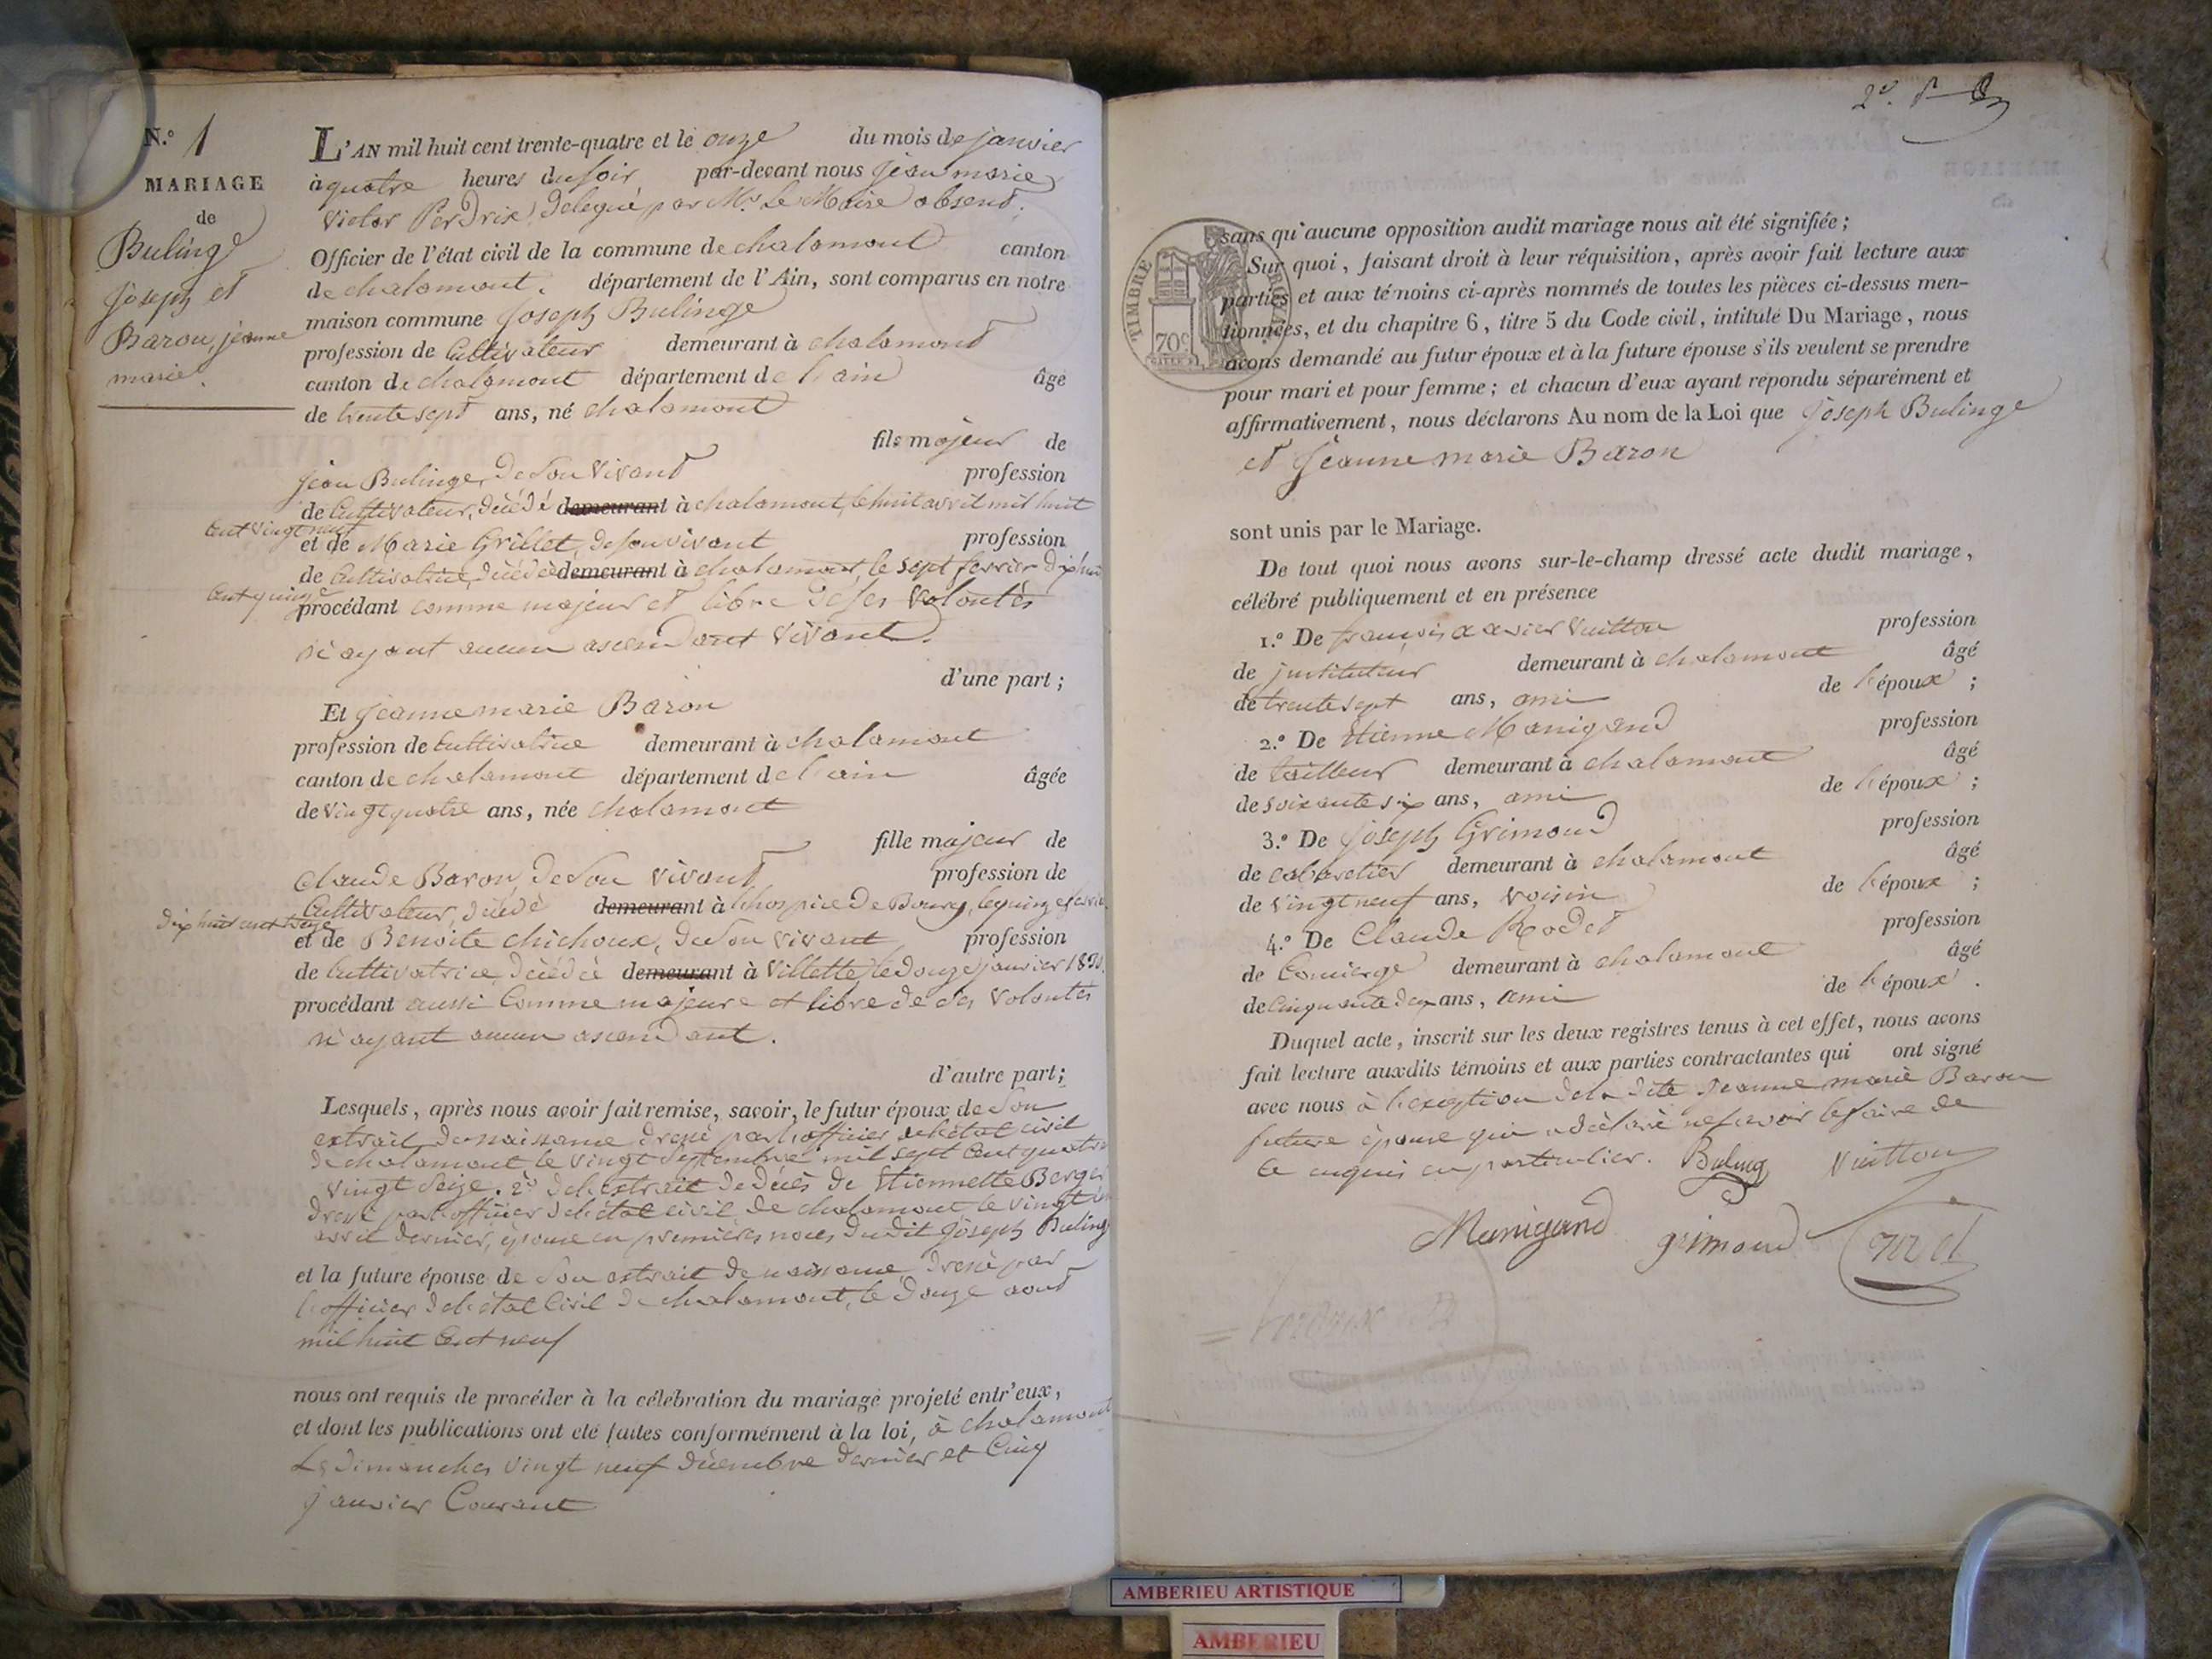 N.° 1
MARIAGE
de
Bulinge
Joseph et
Baron, jeanne
marie.
L'AN mil huit cent trente-quatre et le onze du mois de janvier
à quatre heures du soir par-devant nous jean marie
victor Perdrix délégué par Mr. le Maire absent.
Officier de l'état civil de la commune de chalamont canton
de chalamont. département de l'Ain, sont comparus en notre
maison commune Joseph Bulinge
profession de Cultivateur demeurant à chalamont
canton de chalamont département de l'ain âgé
de trente sept ans, né chalamont
fils majeur de
jean Bulinge, de son vivant profession
de Cultivateur, décédé demeurant à chalamont, le huit avril mil huit
cent vingt neuf
et de Marie Grillet, de son vivant profession
de Cultivatrice, décédée demeurant à chalamont, le sept fevrier dix huit
cent quinze
procédant comme majeur et libre de ses volontés
n'ayant aucun ascendant vivant.
d'une part ;
Et jeanne marie Baron
profession de Cultivatrice demeurant à chalamont
canton de chalamont département de l'ain âgée
de vingt quatre ans, née chalamont
fille majeur de
Claude Baron, de son vivant profession de
Cultivateur, décédé demeurant à l'hospice de Bourg, le quinze fevrier
dix huit cent
et de Benoite chichoux, de son vivant profession
de Cultivatrice, décédée demeurant à Villette, le douze janvier
procédant aussi Comme majeure et libre de ses volontés
n'ayant aucun ascendant.
d'autre part ;
Lesquels, après nous avoir fait remise, savoir, le futur époux de son
extrait de naissance dressé par l'officier de l'état civil
de chalamont, le vingt septembre mil sept cent quatre
vingt seize. 2° de l'extrait de décès de Etiennette Berger
dressé par l'officier de l'état civil de chalamont le vingt
avril dernier, épouse en premières noces dudit Joseph Bulinge
et la future épouse de son extrait de naissance dressé par
l'officier de l'état civil de chalamont, le douze aout
mil huit cent neuf
nous ont requis de procéder à la célébration du mariage projeté entr'eux,
et dont les publications ont été faites conformément à la loi, à chalamont
Les dimanches vingt neuf décembre dernier et Cinq
janvier Courant
sans qu'aucune opposition audit mariage nous ait été signifiée ;
Sur quoi, faisant droit à leur réquisition, après avoir fait lecture aux
parties et aux témoins ci-après nommés de toutes les pièces ci-dessus men-
tionnées, et du chapitre 6, titre 5 du Code civil, intitulé Du Mariage, nous
avons demandé au futur époux et à la future épouse s'ils veulent se prendre
pour mari et pour femme ; et chacun d'eux ayant répondu séparément et
affirmativement, nous déclarons Au nom de la Loi que Joseph Bulinge
et Jeanne marie Baron
TIMBRE ROYAL
70c
sont unis par le Mariage.
De tout quoi nous avons sur-le-champ dressé acte dudit mariage,
célébré publiquement et en présence
1.° De françois xavier Vuitton profession
de instituteur demeurant à chalamont âgé
de trente sept ans, ami de l'époux ;
2.° De Etienne Manigand profession
de tailleur demeurant à chalamont âgé
de soixante six ans, ami de l'époux ;
3.° De Joseph Grimond profession
de cabaretier demeurant à chalamont âgé
de vingt neuf ans, voisin de l'époux ;
4.° De Claude Rodet profession
de Concierge demeurant à chalamont âgé
de Cinquante deux ans, ami de l'époux .
Duquel acte, inscrit sur les deux registres tenus à cet effet, nous avons
fait lecture auxdits témoins et aux parties contractantes qui ont signé
avec nous à l'exception de la dite jeanne marie Baron
future épouse qui a déclaré ne savoir le faire de
ce enquis en particulier. Buling Vuitton
Manigand grimond rodet
AMBERIEU ARTISTIQUE
AMBERIEU